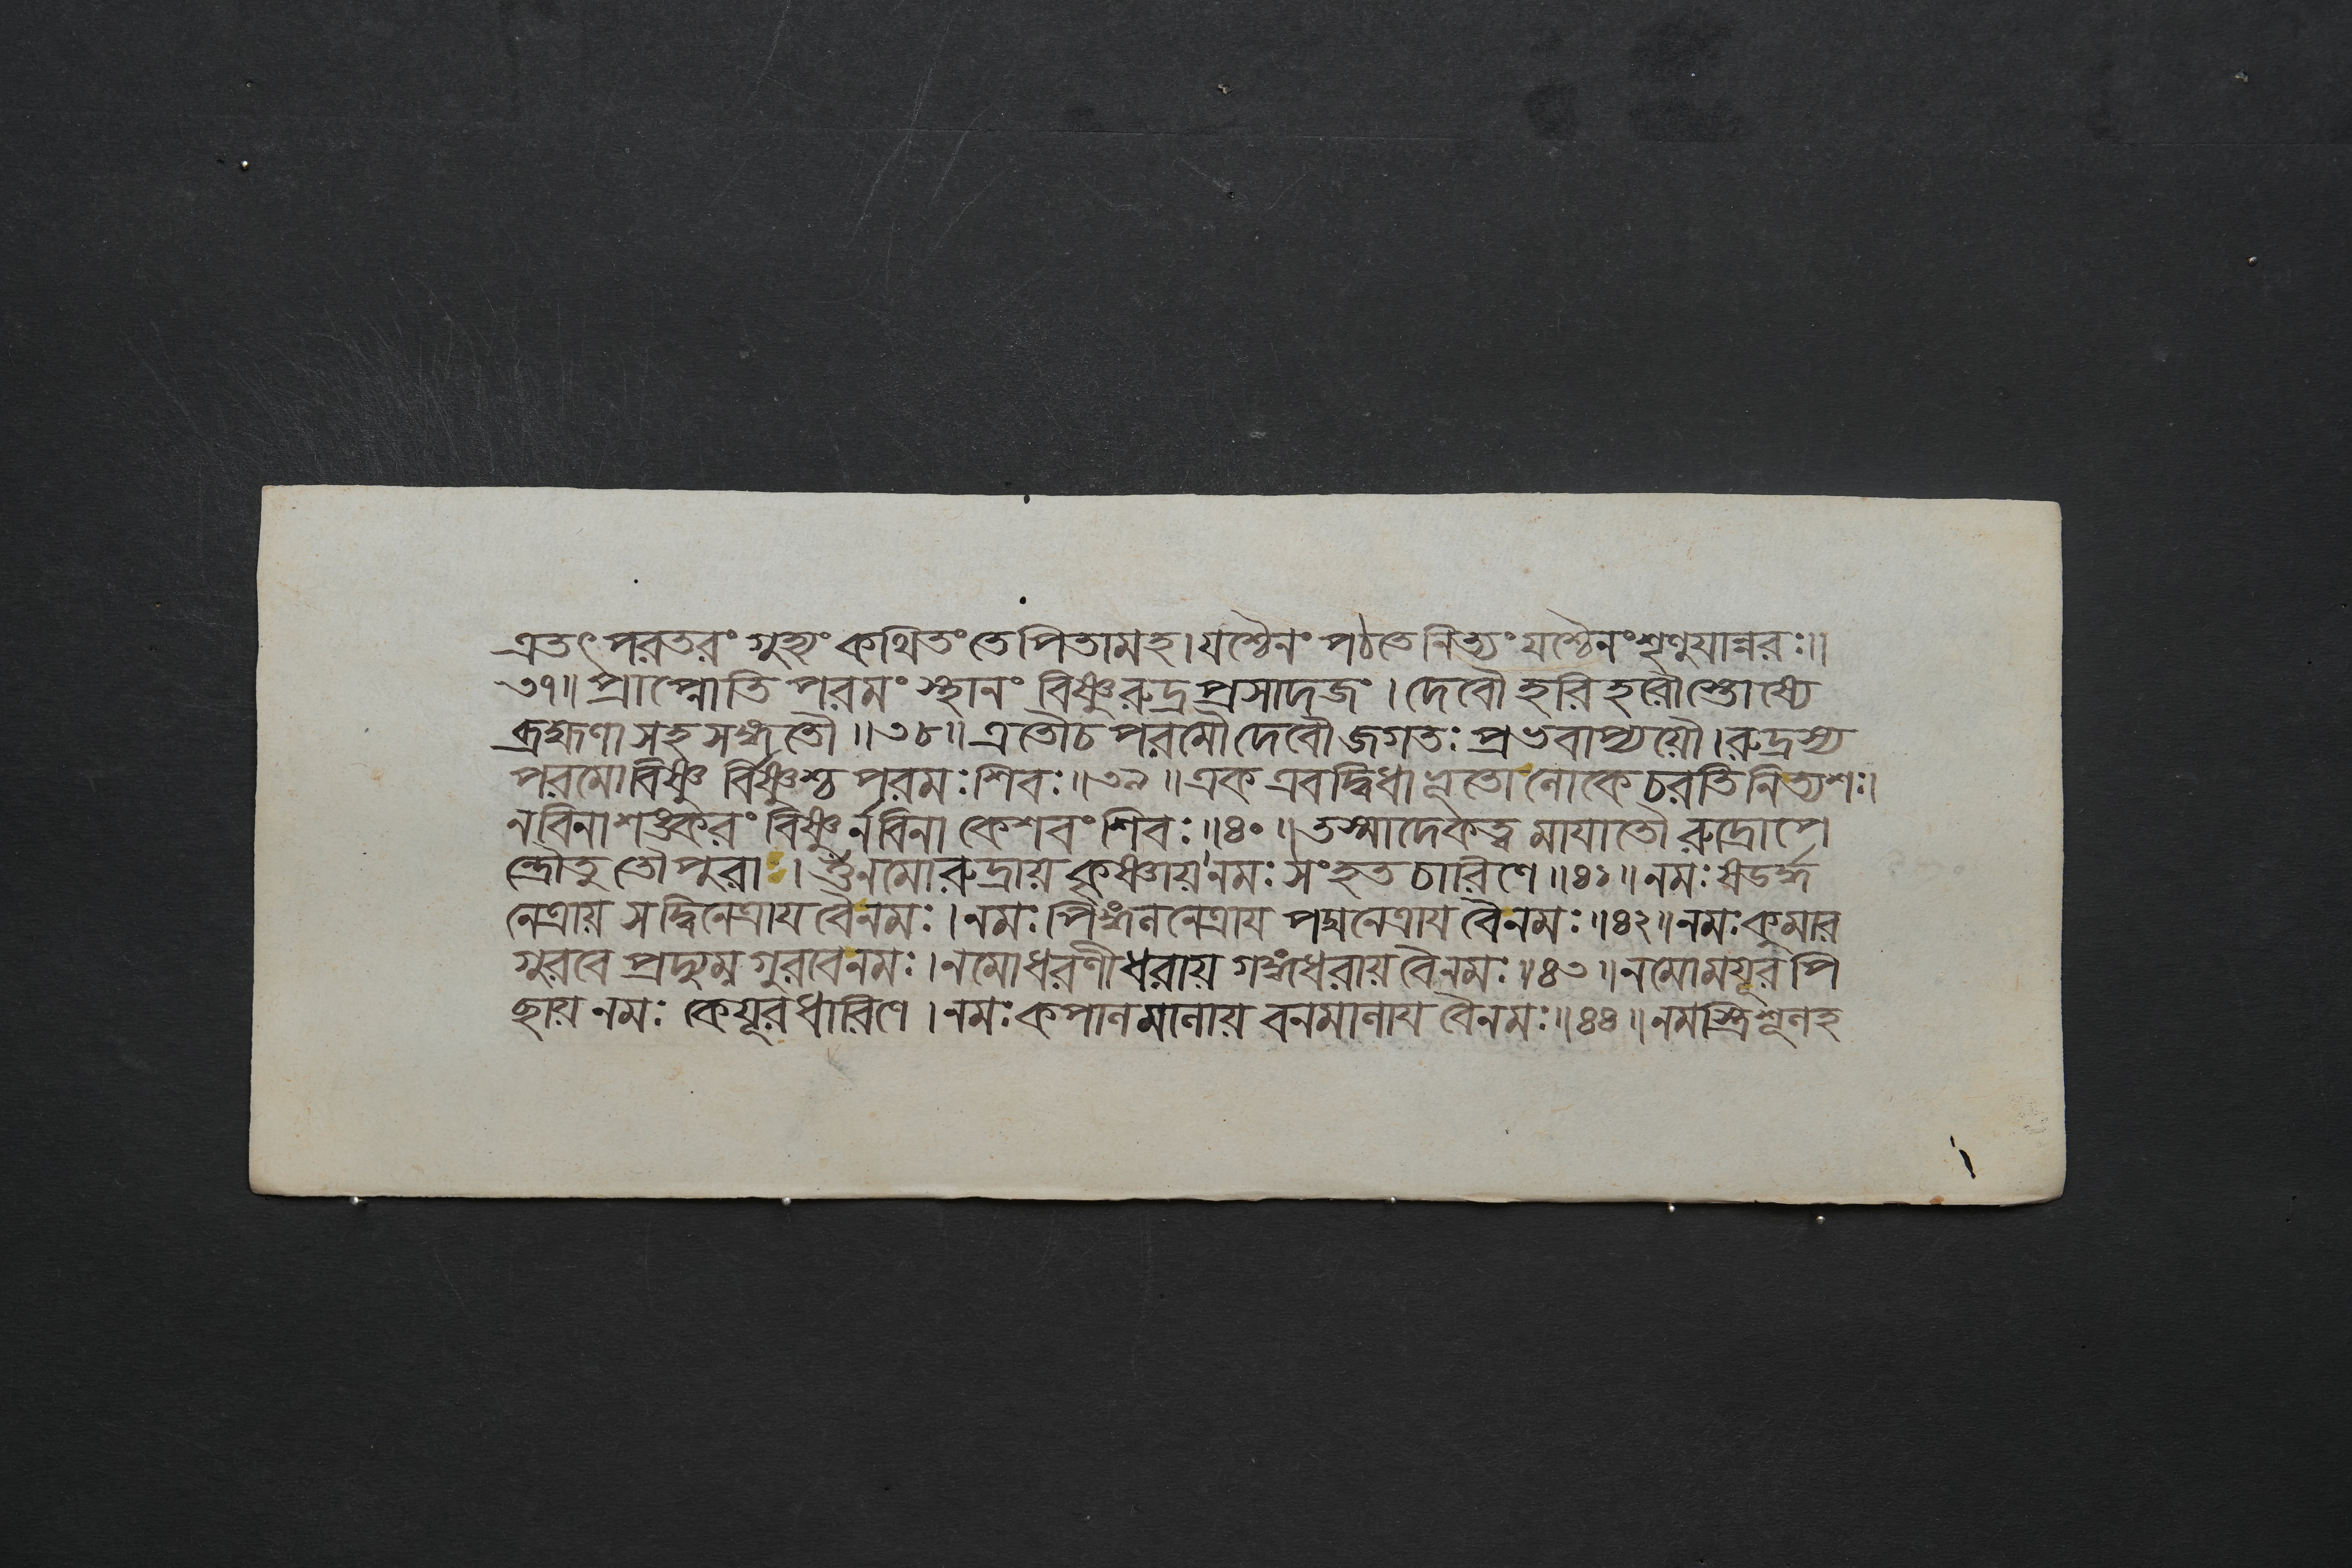 এতৎ পরতরং গুহ্যং কথিতং তে পিতামহ। যশ্চৈনং পঠতে নিত্যং যশ্চৈনং শৃণুযান্নরঃ॥
৩৭॥ প্রাপ্নোতি পরমং স্থানং বিষ্ণুরুদ্রপ্রসাদজং। দেবৌ হরিহরৌ স্তোষ্যে
ব্রহ্মণা সহ সঙ্গতৌ॥৩৮॥ এতৌ চ পরমৌ দেবৌ জগতঃ প্রভবাপ্যয়ৌ। রুদ্রস্য
পরমো বিষ্ণু র্বিষ্ণুশ্চ পরমঃ শিবঃ॥৩৯॥ এক এব দ্বিধাভূতো লোকে চরতি নিত্যশঃ।
ন বিনা শঙ্করং বিষ্ণুর্ন বিনা কেশবং শিবঃ॥৪০॥ তস্মাদেকত্বমাযাতৌ রুদ্রোপে
ন্দ্রৌ তু তৌ পুরা। ওঁ নমো রুদ্রায় কৃষ্ণায় নমঃ সংহতচারিণে॥৪১॥ নমঃ ষডর্দ্ধ
নেত্রায় সদ্বিনেত্রায বৈ নমঃ। নমঃ পিঙ্গলনেত্রায পদ্মনেত্রায বৈ নমঃ॥৪২॥ নমঃ কুমার
গুরবে প্রদ্যুম্নগুরবে নমঃ। নমো ধরণীধরায় গঙ্গাধরায় বৈ নমঃ॥৪৩॥ নমো ময়ূরপি
ছায় নমঃ কেয়ূরধারিণে। নমঃ কপালমালায় বনমালায বৈ নমঃ॥৪৪॥ নমস্ত্রিশূলহ